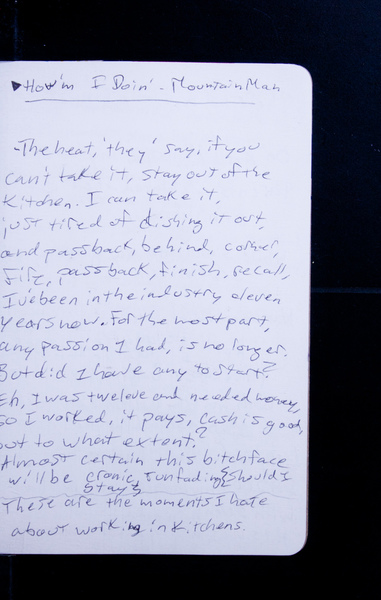 ▶ How'm I Doin'. - Mountain Man
-The heat, 'they' say, if you
can't take it, stay out of the
Kitchen. I can take it,
just tired of dishing it out,
and passback, behind, corner,
fire, passback, finish, recall,
I've been in the industry eleven
years now. For the most part,
any passion I had, is no longer.
But did I have any to start?
Eh, I was twelve and needed money,
so I worked, it pays, cash is good,
but to what extent?
Almost certain this bitchface
will be cronic, unfading should I
stay?
These are the moments I hate
about working in kitchens.